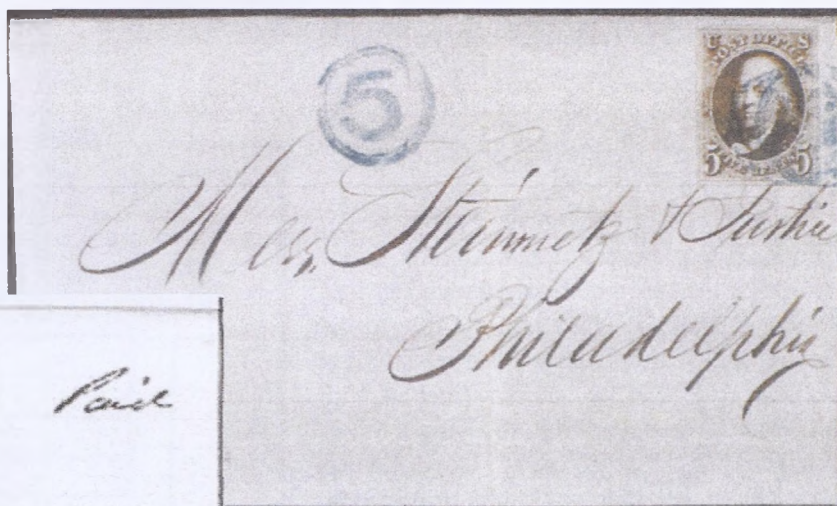 5
U S
POST OFFICE
5 FIVE CENTS 5
Mess. Steinmetz & Justice
Philadelphia
Paid